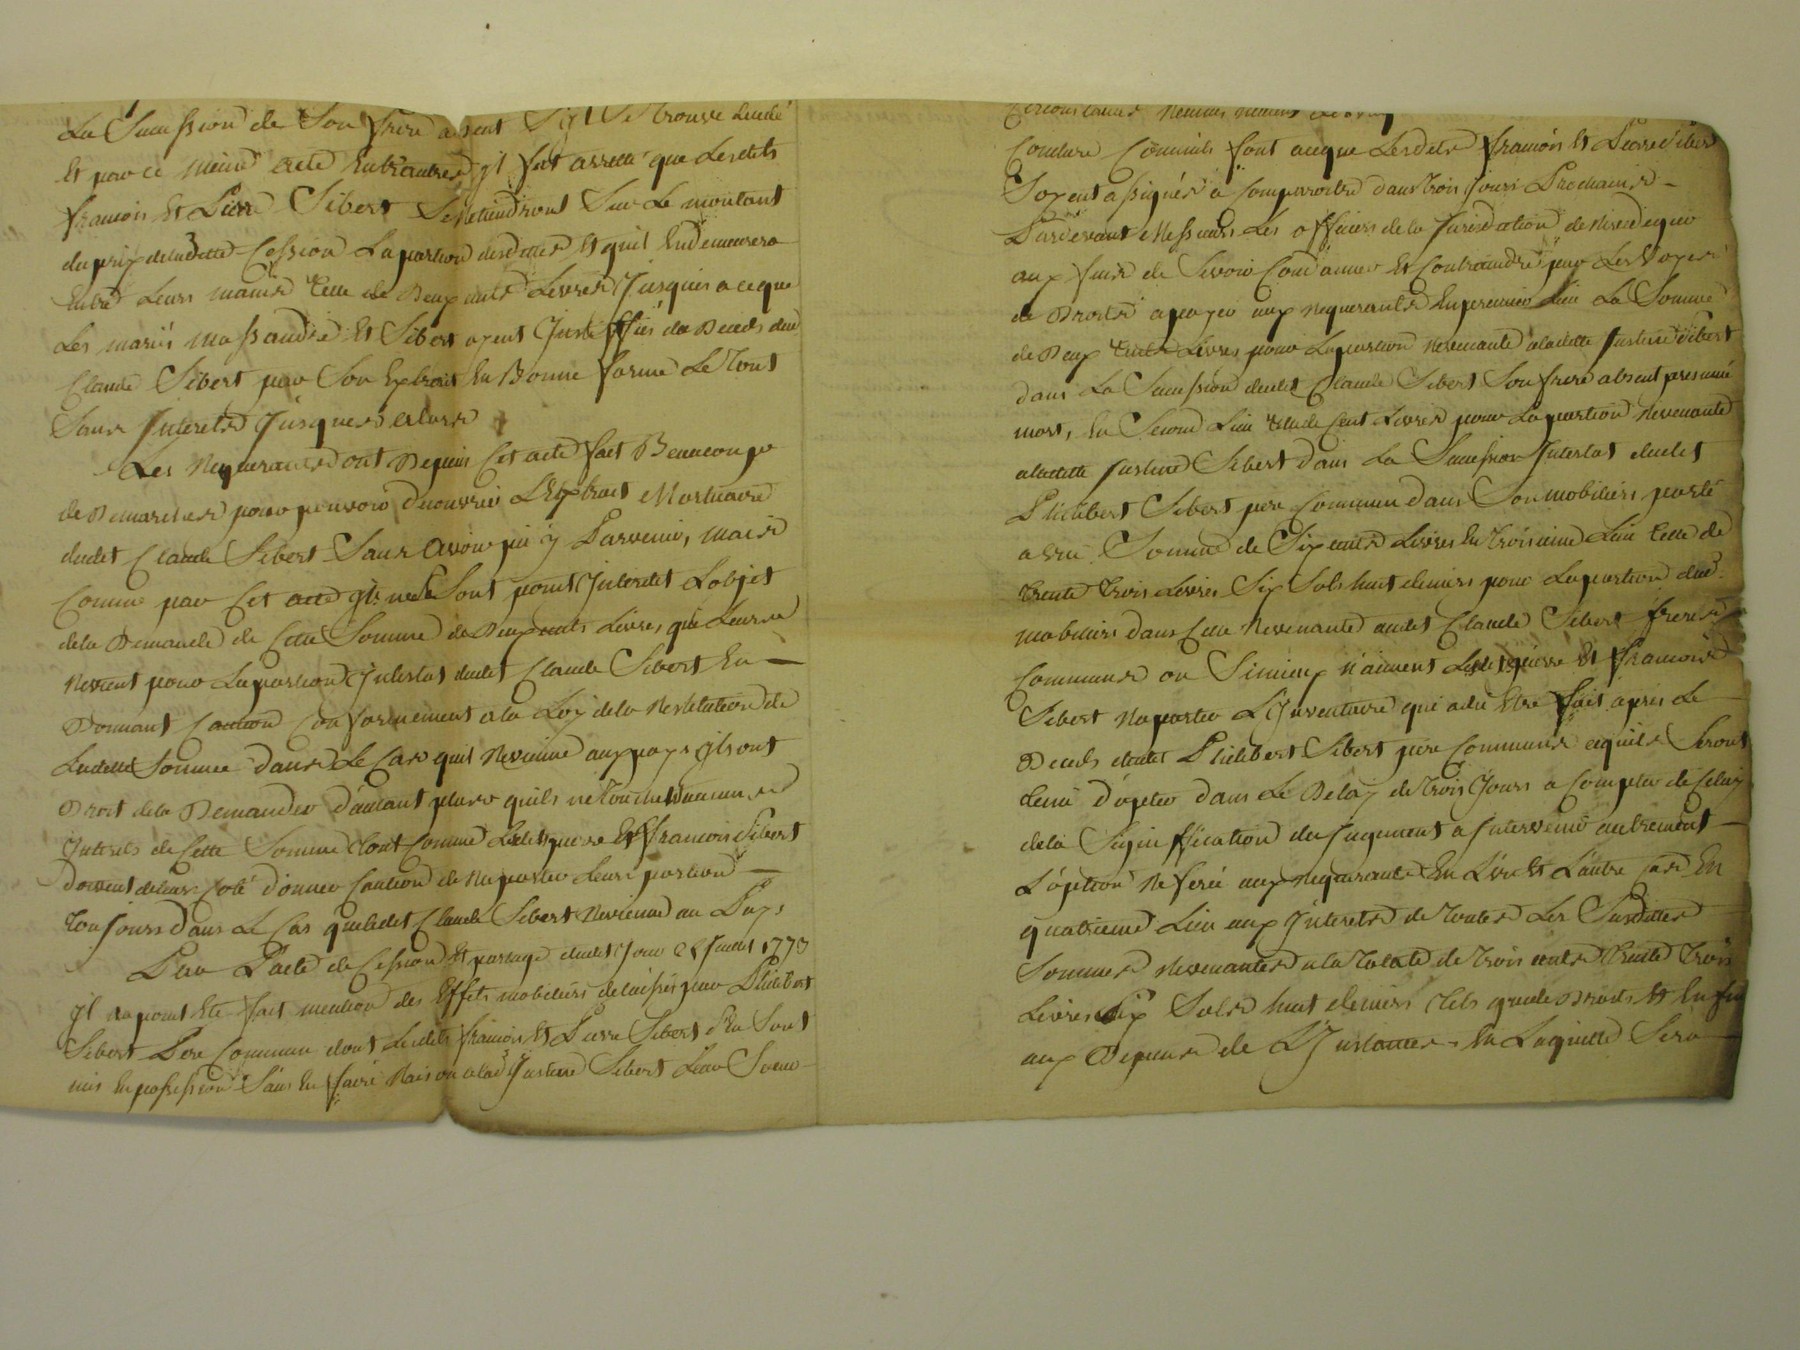 La Sucession de Son frere absent S'yl Se trouve decedé
Et par ce même acte Entr'autres yl fut arretté que Lesdits
francois Et Pierre Sibert Se Retiendront Sur Le montant
du prix de laditte Cession La portion desdittes Et quil En demeurera
Entre Leurs mains Celle de Deux cents Livres Jusques a ce que
Les mariés massandié Et Sibert ayent Justiffiés du Decés dud
Claude Sibert par Son Extrait En Bonne forme Le Tout
Sans Interets Jusques alors
Les Requerants ont Depuis Cet acte fait Beaucoup
de Demarches pour pouvoir decouvrir L'Extrait Mortuaire
dudet Claude Sibert Sans avoir pü y Parvenir, mais
Comme par Cet acte yls ne Se Sont point Interdit L'objet
de la Demande de Cette Somme de Deux cents Livres qui Leur
Revient pour La portion Intestat dudet Claude Sibert En
Donnant Caution Conformement a la Loy de la Restitution de
Laditte Somme dans Le Cas quil Revienne aux pays yls ont
Droit de la Demander d'autant plus quils ne Touchent aucuns
Interets de Cette Somme tout Comme Lesdets pierre Et francois Sibert
doivent de leur Coté donner Caution de Raporter Leurs portions
toujours dans Le Cas que ledet Claude Sibert Revienne au Pays
Par L'acte de Cession Et partage dudet Jour Juillet 1773
Yl na point Eté fait mention des Effets mobiliers delaissés par Philibert
Sibert Pere Commun dont Lesdets francois Et Pierre Sibert S'En Sont
mis En possession Sans En faire Raison a lad Justine Sibert Leur Soeur
Circonstances
Conclure Commis font a ce que Lesdets francois Et Pierre Sibert
Soyent assignés a Comparoitre dans Trois Jours Prochains
Pardevant Messieurs Les officiers de la Juridiction de
aux fins de Se voir Condamner Et Contraindre par Les Voyes
de Droits a payer aux Requerants En premier Lieu La Somme
de Deux Cents Livres pour La portion Revenante a ladette Justine Sibert
dans La Sucession dudet Claude Sibert Son frere absent presumé
mort, En Second Lieu Celle de Cent Livres pour La portion Revenante
a ladette Justine Sibert dans La Sucession Intestat dudet
Philibert Sibert pere Commun dans Son mobilier porté
a une Somme de Six cents Livres En Troisieme Lieu Celle de
trente Trois Livres Six Sols huit deniers pour La portion dud
mobiliers dans Celle Revenante audet Claude Sibert freres
Communs ou Si mieux n'aiment Lesdets pierre Et francois
Sibert Raporter L'Inventaire qui a du Etre fait après Le
Decès dudet Philibert Sibert pere Commun a quils Seront
tenu d'opter dans Le Delay de Trois Jours a Compter de Celuy
de la Signiffication du Jugement a Intervenir autrement
L'option Referée aux Requerants En L'un Et L'autre Cas En
quatrieme Lieu aux Interets de toutes Les Susdittes
Sommes Revenantes a la Totale de Trois cents Trente Trois
Livres Six Sols huit deniers Tels que de Droits Et Enfin
aux Depens de L'Instance En Laquelle Sera